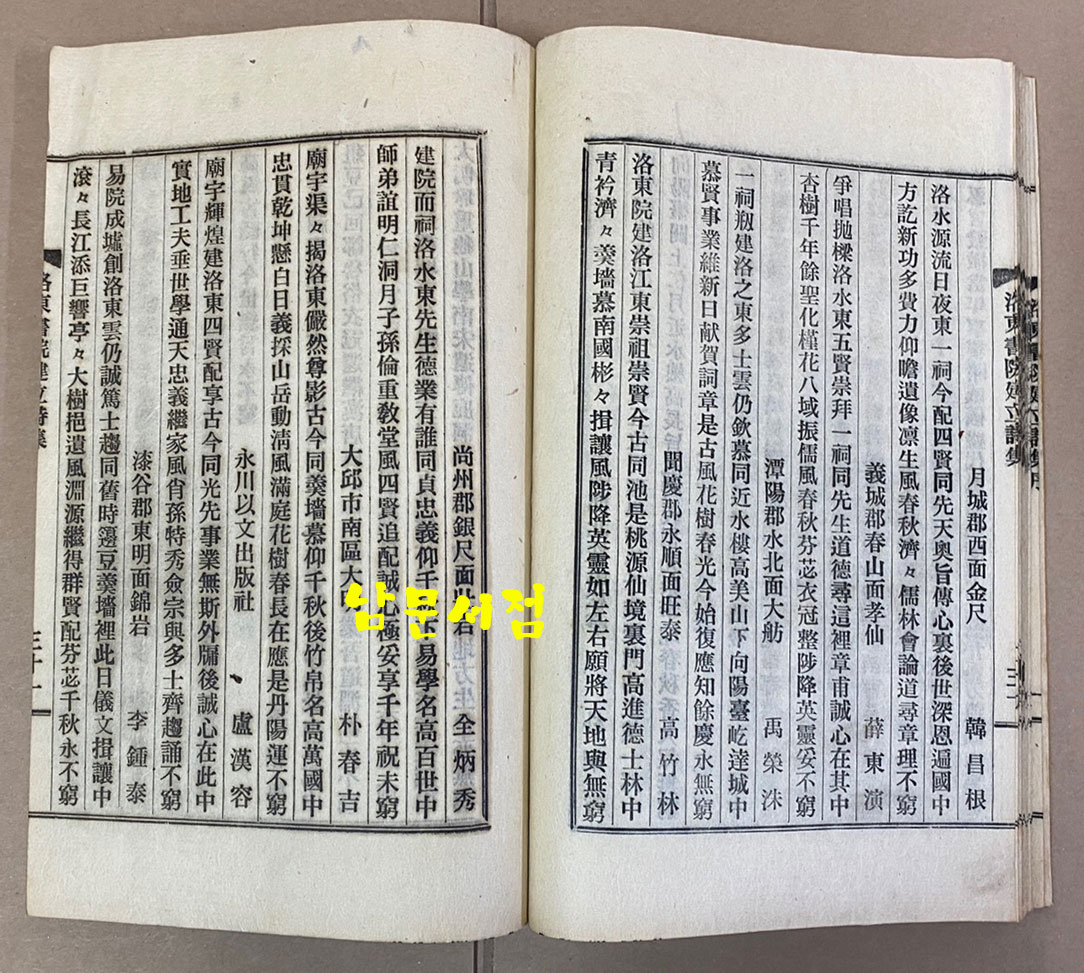 洛東書院建立詩集
月城郡西面金尺 韓昌根
洛水源流日夜東一祠今配四賢同先天奧旨傳心裏後世深恩遍國中
方訖新功多費力仰瞻遺像凛生風春秋濟々儒林會論道尋章理不窮
義城郡春山面孝仙 薛東演
爭唱拋樑洛水東五賢崇拜一祠同先生道德尋這裡章甫誠心在其中
杏樹千年餘聖化槿花八域振儒風春秋芬苾衣冠整陟降英靈妥不窮
潭陽郡水北面大舫 禹榮洙
一祠剏建洛之東多士雲仍欽慕同近水樓高美山下向陽臺屹達城中
慕賢事業維新日献賀詞章是古風花樹春光今始復應知餘慶永無窮
聞慶郡永順面旺泰 高竹林
洛東院建洛江東崇祖崇賢今古同池是桃源仙境裏門高進德士林中
青衿濟々羹墻慕南國彬々揖讓風陟降英靈如左右願將天地與無窮
尚州郡銀尺面 全炳秀
建院而祠洛水東先生德業有誰同貞忠義仰千 易學名高百世中
師弟誼明仁洞月子孫倫重敎堂風四賢追配誠心極妥享千年祝未窮
大邱市南區大 朴春吉
廟宇渠々揭洛東儼然尊影古今同羹墻慕仰千秋後竹帛名高萬國中
忠貫乾坤懸白日義探山岳動淸風滿庭花樹春長在應是丹陽運不窮
永川以文出版社 盧漢容
廟宇輝煌建洛東四賢配享古今同光先事業無斯外牖後誠心在此中
實地工夫垂世學通天忠義繼家風肖孫特秀僉宗與多士齊趨誦不窮
漆谷郡東明面錦岩 李鍾泰
易院成墟創洛東雲仍誠篤士趨同舊時籩豆羹墻裡此日儀文揖讓中
滾々長江添巨響亭々大樹挹遺風淵源繼得群賢配芬苾千秋永不窮
洛東書院建立詩集 三十一
남문서점